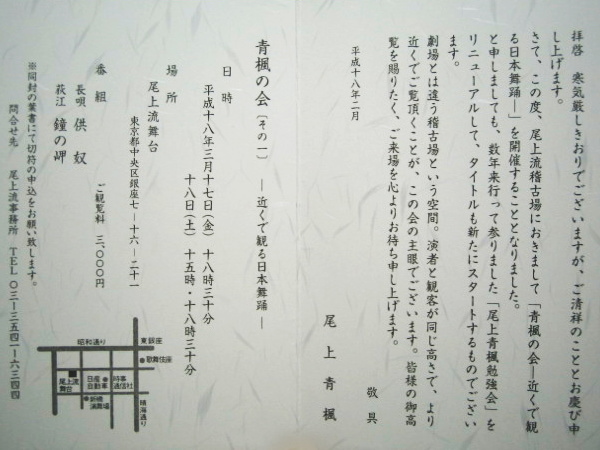 拝啓　寒気厳しきおりでございますが、ご清祥のこととお慶び申
し上げます。
さて、この度、尾上流稽古場におきまして「青楓の会―近くで観
る日本舞踊―」を開催することとなりました。
と申しましても、数年来行って参りました「尾上青楓勉強会」を
リニューアルして、タイトルも新たにスタートするものでござい
ます。
劇場とは違う稽古場という空間。演者と観客が同じ高さで、より
近くでご覧頂くことが、この会の主眼でございます。皆様の御高
覧を賜りたく、ご来場を心よりお待ち申し上げます。
敬具
平成十八年二月
尾上青楓
青楓の会〔その一〕　―近くで観る日本舞踊―
日時
平成十八年三月十七日(金)　十八時三十分
十八日(土)　十五時・十八時三十分
場所
尾上流舞台
東京都中央区銀座七―十六―二十一
番組
長唄　供奴
荻江　鐘の岬
ご観覧料　三、〇〇〇円
※同封の葉書にて切符の申込をお願い致します。
問合せ先　尾上流事務所　TEL〇三―三五四一―六三四四
昭和通り
東銀座
歌舞伎座
尾上流
舞台
日産
自動車
時事
通信社
新橋
演舞場
晴海通り